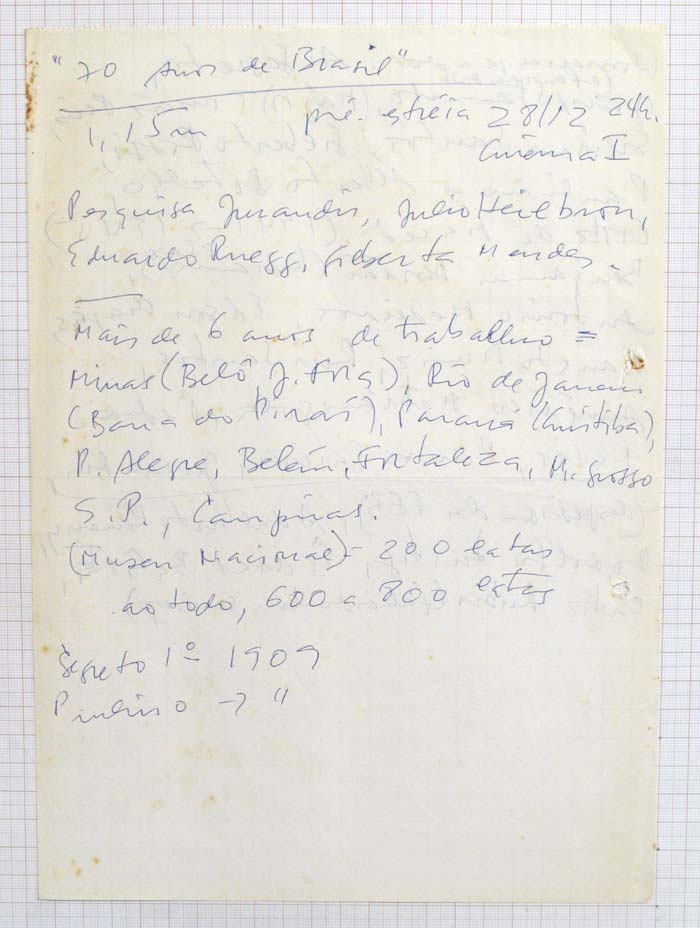 "70 Anos de Brasil"
1,15m pré-estréia 28/12 24h.
Cinema I
Pesquisa Jurandir, Julio Heilbron,
Eduardo Ruegg, Gilberta Mendes.
Mais de 6 anos de trabalho =
Minas (Belô, J. Fora), Rio de Janeiro
(Barra do Piraí), Paraná (Curitiba),
P. Alegre, Belém, Fortaleza, M. Grosso
S.P., Campinas.
(Museu Nacional) - 200 latas
ao todo, 600 a 800 latas
Segreto 1º - 1909
→ "